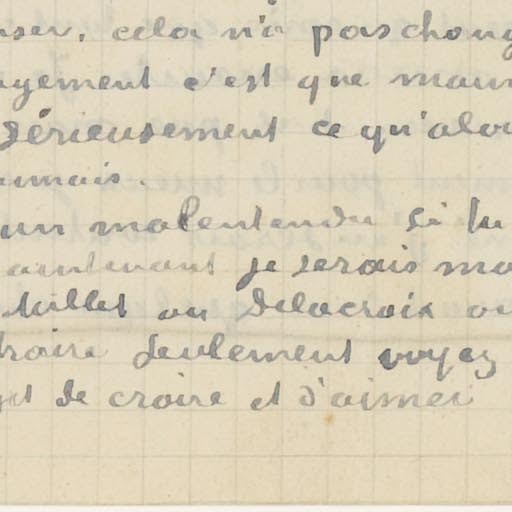 nser, cela n'a pas chang
ngement c'est que main
sérieusement ce qu'alo
nnais
un malentendu si tu
aintenant je serais ma
Millet ou Delacroix ou
traire seulement voyez
et de croire et d'aimer